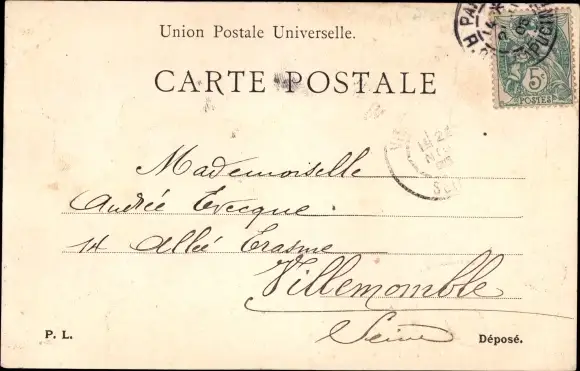 Union Postale Universelle.
CARTE POSTALE
5c
POSTES
Mademoiselle
Andrée Evecque
14 Allée Erasme
Villemomble
Seine
P. L.
Déposé.